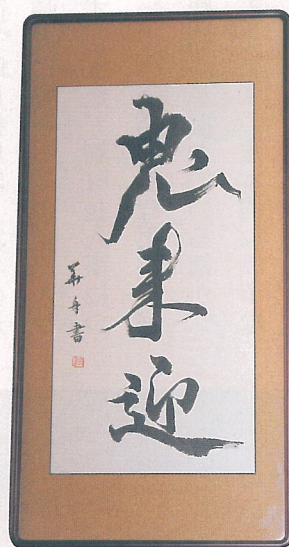 鬼来迎
華舟書